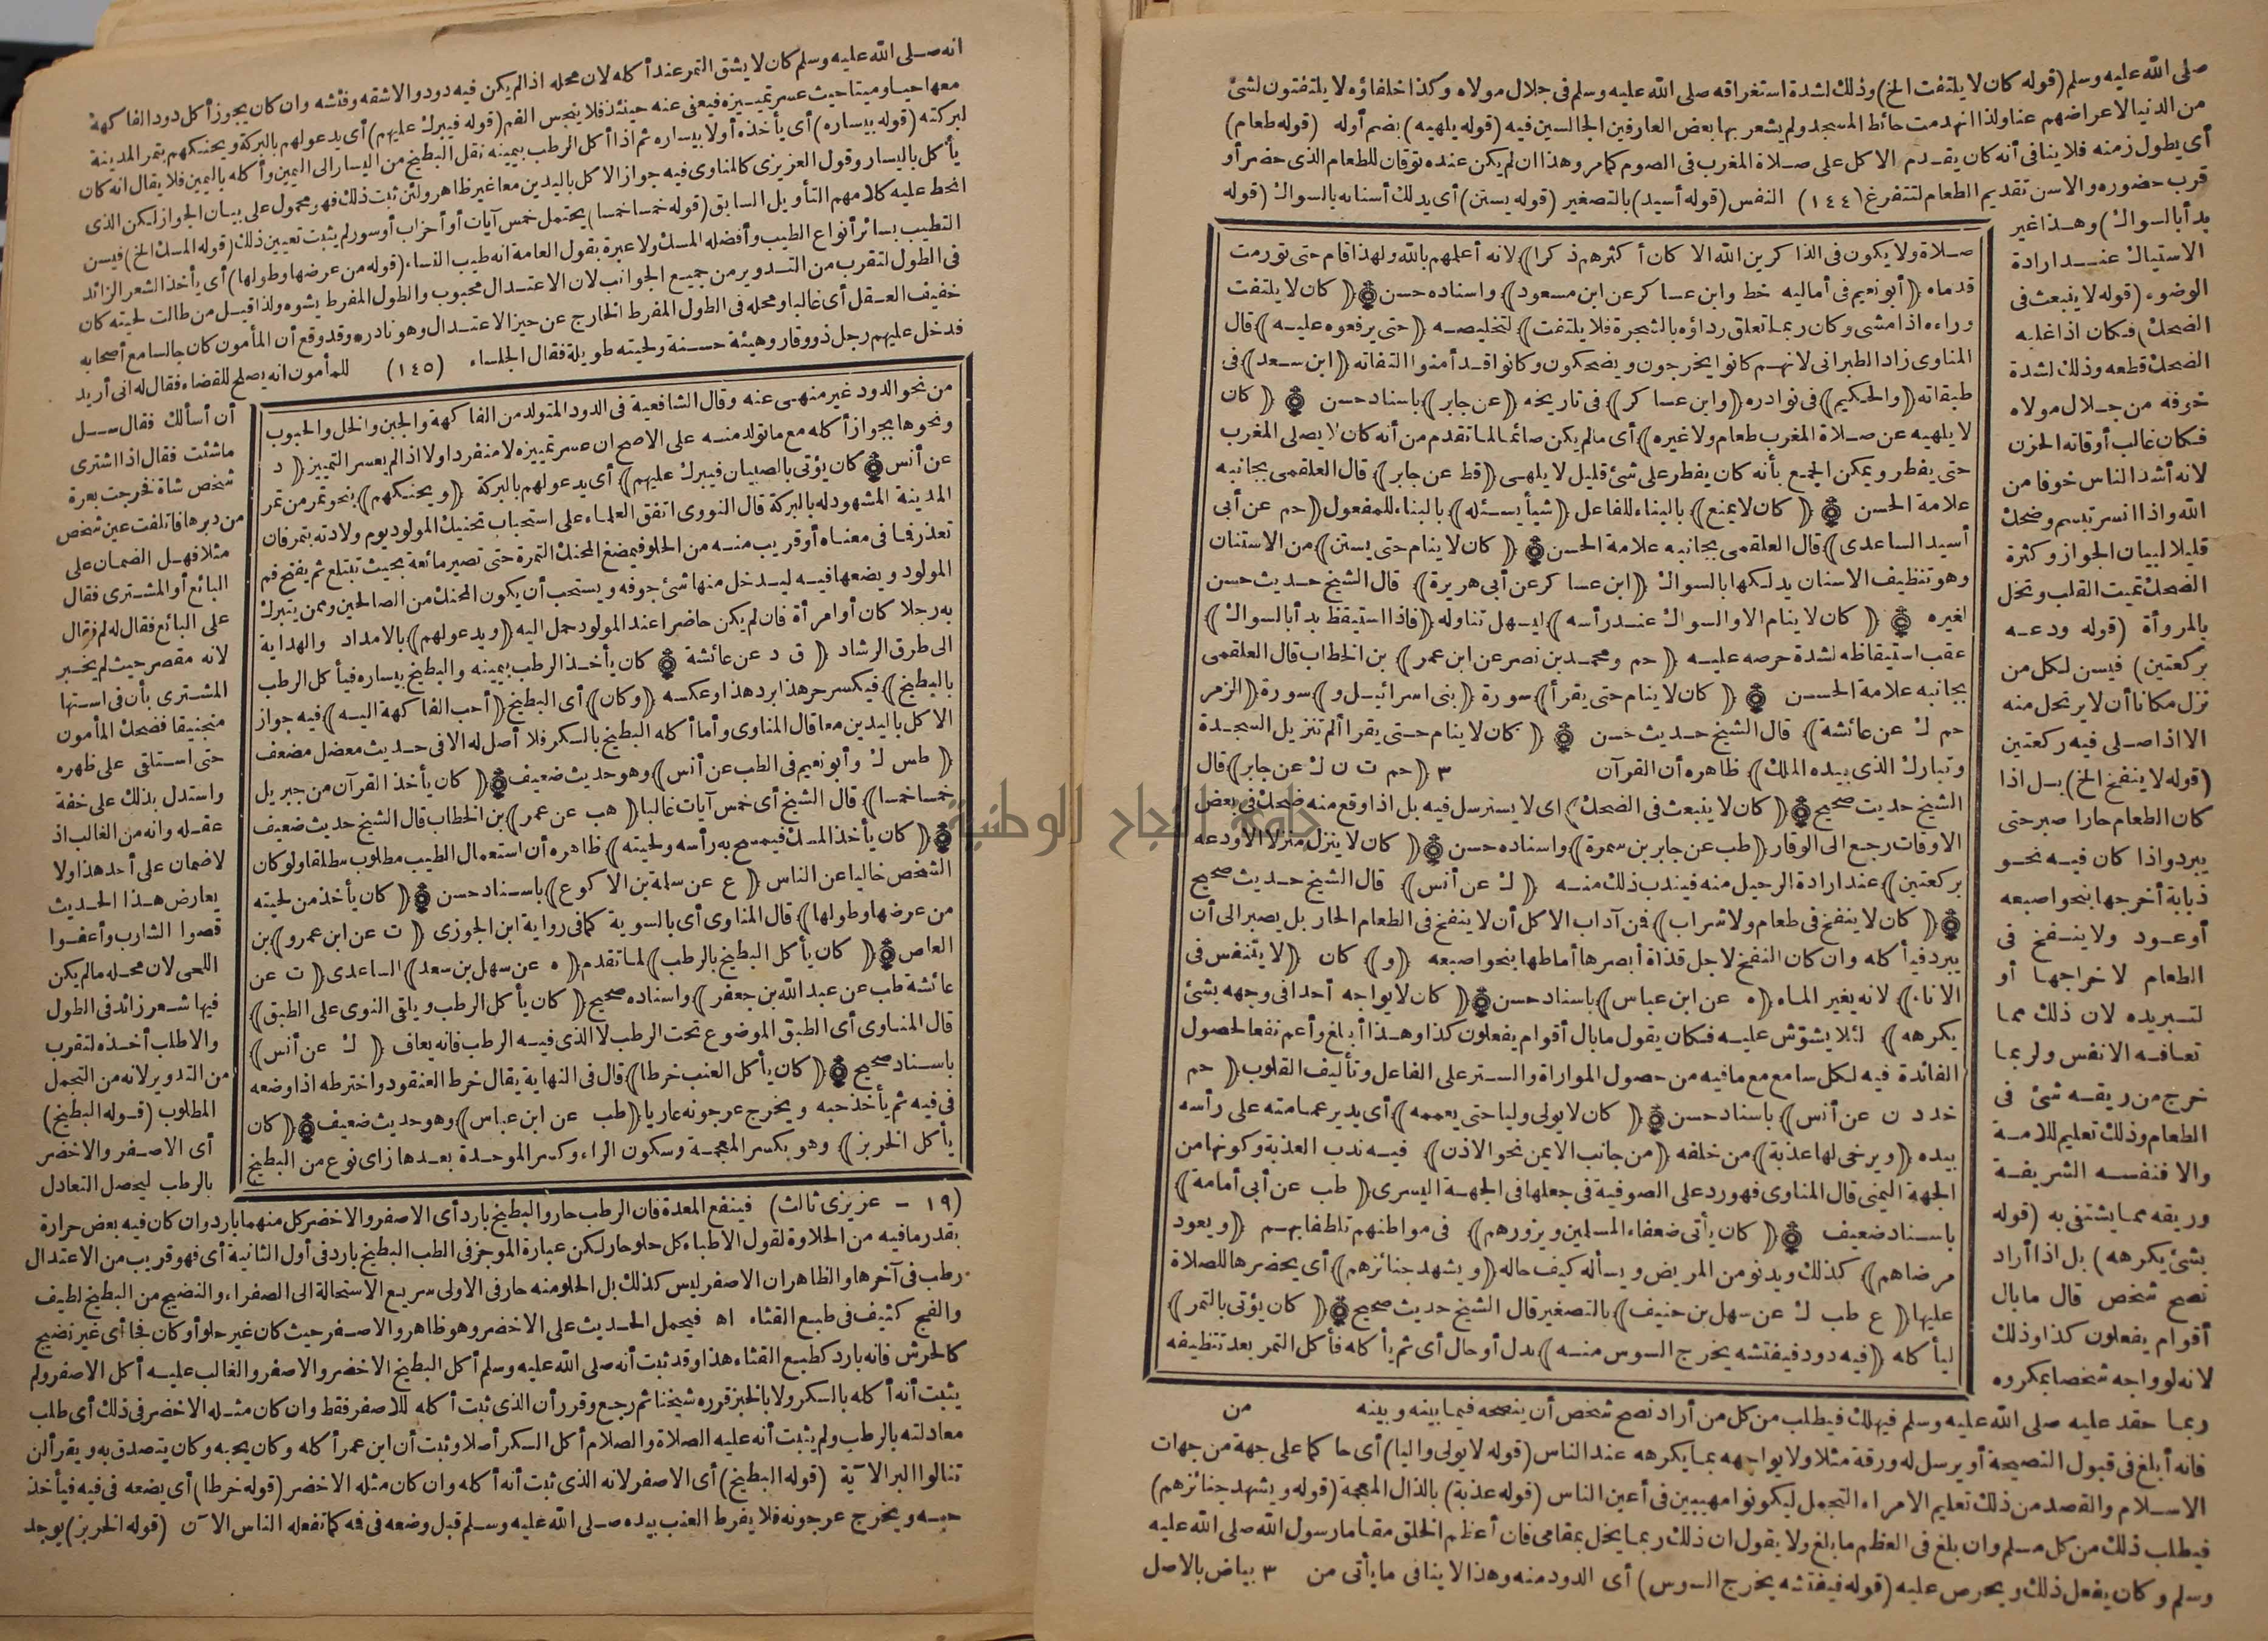 صلى الله عليه وسلم (قوله كان لا يلتفت الخ) وذلك لشدة استغراقه صلى الله عليه وسلم فى جلال مولاه وكذا خلفاؤه لا يلتفتون لشئ
من الدنيا لاعراضهم عنها ولذا انهدمت حائط المسجد ولم يشعر بها بعض العارفين الجالسين فيه (قوله يلهيه) بضم أوله (قوله طعام)
أى يطول زمنه فلا ينافى أنه كان يقدم الاكل على صلاة المغرب فى الصوم كما مر وهذا ان لم يكن عنده توقان للطعام الذى حضر أو
قرب حضوره والاسن تقديم الطعام لتتفرغ (١٤٤) النفس (قوله أسيد) بالتصغير (قوله يستن) أى يدلك أسنانه بالسواك (قوله
بدأ بالسواك) وهذا غير
الاستياك عند ارادة
الوضوء (قوله لا ينبعث فى
الضحك) فكان اذا غلبه
الضحك قطعه وذلك لشدة
خوفه من جلال مولاه
فكان غالب أوقاته الحزن
لانه أشد الناس خوفا من
الله واذا انسر تبسم وضحك
قليلا لبيان الجواز وكثرة
الضحك تميت القلب وتخل
بالمروأة (قوله ودعه
بركعتين) فيسن لكل من
نزل مكانا أن لا يرتحل منه
الا اذا صلى فيه ركعتين
(قوله لا ينفخ الخ) بل اذا
كان الطعام حارا صبر حتى
يبرد واذا كان فيه نحو
ذبابة أخرجها بنحو اصبعه
أو عود ولا ينفخ فى
الطعام لاخراجها أو
لتبريده لان ذلك مما
تعافه الانفس ولربما
خرج من ريقه شئ فى
الطعام وذلك تعليم للامة
والا فنفسه الشريفة
وريقه مما يشتفى به (قوله
بشئ يكرهه) بل اذا أراد
نصح شخص قال ما بال
أقوام يفعلون كذا وذلك
لانه لو واجه شخصا بمكروه
صلاة ولا يكون فى الذاكرين الله الا كان أكثرهم ذكرا) لانه أعلمهم بالله ولهذا قام حتى تورمت
قدماه (أبو نعيم فى أماليه خط وابن عساكر عن ابن مسعود) واسناده حسن (كان لا يلتفت
وراءه اذا مشى وكان ربما تعلق رداؤه بالشجرة فلا يلتفت) لتخليصه (حتى يرفعوه عليه) قال
المناوى زاد الطبرانى لانهم كانوا يمزحون ويضحكون وكانوا قد أمنوا التفاته (ابن سعد) فى
طبقاته (والحكيم) فى نوادره (وابن عساكر) فى تاريخه (عن جابر) باسناد حسن (كان
لا يلهيه عن صلاة المغرب طعام ولا غيره) أى ما لم يكن صائما لما تقدم من أنه كان لا يصلى المغرب
حتى يفطر ويمكن الجمع بأنه كان يفطر على شئ قليل لا يلهى (قط عن جابر) قال العلقمى بجانبه
علامة الحسن (كان لا يمنع) بالبناء للفاعل (شيأ يسئله) بالبناء للمفعول (حم عن أبى
أسيد الساعدى) قال العلقمى بجانبه علامة الحسن (كان لا ينام حتى يستن) من الاستنان
وهو تنظيف الاسنان بدلكها بالسواك (ابن عساكر عن أبى هريرة) قال الشيخ حديث حسن
لغيره (كان لا ينام الا والسواك عند رأسه) ليسهل تناوله (فاذا استيقظ بدأ بالسواك)
عقب استيقاظه لشدة حرصه عليه (حم ومحمد بن نصر عن ابن عمر) بن الخطاب قال العلقمى
بجانبه علامة الحسن (كان لا ينام حتى يقرأ) سورة (بنى اسرائيل و) سورة (الزمر
حم ك عن عائشة) قال الشيخ حديث حسن (كان لا ينام حتى يقرا ألم تنزيل السجدة
وتبارك الذى بيده الملك) ظاهره أن القرآن ٣ (حم ت ن ك عن جابر) قال
الشيخ حديث صحيح (كان لا ينبعث فى الضحك) اى لا يسترسل فيه بل اذا وقع منه ضحك فى بعض
الاوقات رجع الى الوقار (طب عن جابر بن سمرة) واسناده حسن (كان لا ينزل منزلا الا ودعه
بركعتين) عند ارادة الرحيل منه فيندب ذلك منه (ك عن أنس) قال الشيخ حديث صحيح
(كان لا ينفخ فى طعام ولا شراب) فمن آداب الاكل أن لا ينفخ فى الطعام الحار بل يصبر الى أن
يبرد فيأكله وان كان النفخ لاجل قذاة أبصرها أماطها بنحو اصبعه (و) كان (لا يتنفس فى
الاناء) لانه يغير الماء (ه عن ابن عباس) باسناد حسن (كان لا يواجه أحدا فى وجهه بشئ
يكرهه) لئلا يشوش عليه فكان يقول ما بال أقوام يفعلون كذا وهذا أبلغ وأعم نفعا لحصول
الفائدة فيه لكل سامع مع ما فيه من حصول المواراة والستر على الفاعل وتأليف القلوب (حم
خد د ن عن أنس) باسناد حسن (كان لا يولى واليا حتى يعممه) أى يدير عمامته على رأسه
بيده (ويرخى لها عذبة) من خلفه (من جانب الايمن نحو الاذن) فيه ندب العذبة وكونها من
الجهة اليمنى قال المناوى فهو رد على الصوفية فى جعلها فى الجهة اليسرى (طب عن أبى أمامة)
باسناد ضعيف (كان يأتى ضعفاء المسلمين ويزورهم) فى مواطنهم تلطفا بهم (ويعود
مرضاهم) كذلك ويدنو من المريض ويسأله كيف حاله (ويشهد جنائزهم) أى يحضرها للصلاة
عليها (ع طب ك عن سهل بن حنيف) بالتصغير قال الشيخ حديث صحيح (كان يؤتى بالتمر)
ليأكله (فيه دود فيفتشه يخرج السوس منه) بدل أو حال أى ثم يأكله فأكل التمر بعد تنظيفه
من
ربما حقد عليه صلى الله عليه وسلم فيهلك فيطلب من كل من أراد نصح شخص أن ينصحه فيما بينه وبينه
فانه أبلغ فى قبول النصيحة أو يرسل له ورقة مثلا ولا يواجهه بما يكرهه عند الناس (قوله لا يولى واليا) أى حاكما على جهة من جهات
الاسلام والقصد من ذلك تعليم الامراء التجمل ليكونوا مهيبين فى أعين الناس (قوله عذبة) بالذال المعجمة (قوله ويشهد جنائزهم)
فيطلب ذلك من كل مسلم وان بلغ فى العظم ما بلغ ولا يقول ان ذلك ربما يخل بمقامى فان أعظم الخلق مقاما رسول الله صلى الله عليه
وسلم وكان يفعل ذلك ويحرص عليه (قوله فيفتشه يخرج السوس) أى الدود منه وهذا لا ينافى ما يأتى من ٣ بياض بالاصل
انه صلى الله عليه وسلم كان لا يشق التمر عند أكله لان محله اذا لم يكن فيه دود والا شقه وفتشه وان كان يجوز أكل دود الفاكهة
معها حيا وميتا حيث عسر تمييزه فيعفى عنه حينئذ فلا ينجس الفم (قوله فيبرك عليهم) أى يدعو لهم بالبركة ويحنكهم بتمر المدينة
لبركته (قوله بيساره) أى يأخذه أولا بيساره ثم اذا أكل الرطب بيمينه نقل البطيخ من اليسار الى اليمين وأكله باليمين فلا يقال انه كان
يأكل باليسار وقول العزيزى كالمناوى فيه جواز الاكل باليدين معا غير ظاهر ولئن ثبت ذلك فهو محمول على بيان الجواز لكن الذى
انحط عليه كلامهم التأويل السابق (قوله خمسا خمسا) يحتمل خمس آيات أو أحزاب أو سور لم يثبت تعيين ذلك (قوله المسك الخ) فيسن
التطيب بسائر أنواع الطيب وأفضله المسك ولا عبرة بقول العامة انه طيب النساء (قوله من عرضها وطولها) أى يأخذ الشعر الزائد
فى الطول لتقرب من التدوير من جميع الجوانب لان الاعتدال محبوب والطول المفرط يشوه ولذا قيل من طالت لحيته كان
خفيف العقل أى غالبا ومحله فى الطول المفرط الخارج عن حيز الاعتدال وهو نادر وقد وقع أن المأمون كان جالسا مع أصحابه
فدخل عليهم رجل ذو وقار وهيئة حسنة ولحيته طويلة فقال الجلساء (١٤٥) للمأمون انه يصلح للقضاء فقال له انى أريد
من نحو الدود غير منهى عنه وقال الشافعية فى الدود المتولد من الفاكهة والجبن والخل والحبوب
ونحوها بجواز أكله مع ما تولد منه على الاصح ان عسر تمييزه لا منفردا ولا اذا لم يعسر التمييز (د
عن أنس كان يؤتى بالصبيان فيبرك عليهم) أى يدعو لهم بالبركة (ويحنكهم) بنحو تمر من تمر
المدينة المشهود له بالبركة قال النووى اتفق العلماء على استحباب تحنيك المولود يوم ولادته بتمر فان
تعذر فبما فى معناه أو قريب منه من الحلو فيمضغ المحنك التمرة حتى تصير مائعة بحيث تبتلع ثم يفتح فم
المولود ويضعها فيه ليدخل منها شئ جوفه ويستحب أن يكون المحنك من الصالحين وممن يتبرك
به رجلا كان أو امرأة فان لم يكن حاضرا عند المولود حمل اليه (ويدعو لهم) بالامداد والهداية
الى طرق الرشاد (ق د عن عائشة كان يأخذ الرطب بيمينه والبطيخ بيساره فيأكل الرطب
بالبطيخ) فيكسر حر هذا برد هذا وعكسه (وكان) أى البطيخ (أحب الفاكهة اليه) فيه جواز
الاكل باليدين معا قال المناوى وأما أكله البطيخ بالسكر فلا أصل له الا فى حديث معضل مضعف
(طس ك وأبو نعيم فى الطب عن أنس) وهو حديث ضعيف (كان يأخذ القرآن من جبريل
خمسا خمسا) قال الشيخ أى خمس آيات غالبا (هب عن عمر) بن الخطاب قال الشيخ حديث ضعيف
(كان يأخذ المسك فيمسح به رأسه ولحيته) ظاهره أن استعمال الطيب مطلوب مطلقا ولو كان
الشخص خاليا عن الناس (ع عن سلمة بن الاكوع) باسناد حسن (كان يأخذ من لحيته
من عرضها وطولها) قال المناوى أى بالسوية كما فى رواية ابن الجوزى (ت عن ابن عمرو) بن
العاص (كان يأكل البطيخ بالرطب) لما تقدم (ه عن سهل بن سعد) الساعدى (ت عن
عائشة طب عن عبد الله بن جعفر) واسناده صحيح (كان يأكل الرطب ويلقى النوى على الطبق)
قال المناوى أى الطبق الموضوع تحت الرطب لا الذى فيه الرطب فانه يعاف (ك عن أنس)
باسناد صحيح (كان يأكل العنب خرطا) قال فى النهاية يقال خرط العنقود واخترطه اذا وضعه
فى فيه ثم يأخذ حبه ويخرج عرجونه عاريا (طب عن ابن عباس) وهو حديث ضعيف (كان
يأكل الخربز) وهو بكسر المعجمة وسكون الراء وكسر الموحدة بعدها زاى نوع من البطيخ
أن أسألك فقال سل
ما شئت فقال اذا اشترى
شخص شاة فخرجت بعرة
من دبرها فاتلفت عين شخص
مثلا فهل الضمان على
البائع أو المشترى فقال
على البائع فقال له لم فقال
لانه مقصر حيث لم يخبر
المشترى بأن فى استها
منجنيقا فضحك المأمون
حتى استلقى على ظهره
واستدل بذلك على خفة
عقله وانه من الغالب اذ
لا ضمان على أحد هذا ولا
يعارض هذا الحديث
قصوا الشارب وأعفوا
اللحى لان محله ما لم يكن
فيها شعر زائد فى الطول
والا طلب أخذه لتقرب
من التدوير لانه من التجمل
المطلوب (قوله البطيخ)
أى الاصفر والاخضر
بالرطب ليحصل التعادل
(١٩ - عزيزى ثالث) فينفع المعدة فان الرطب حار والبطيخ بارد أى الاصفر والاخضر كل منهما بارد وان كان فيه بعض حرارة
بقدر ما فيه من الحلاوة لقول الاطباء كل حلو حار لكن عبارة الموجز فى الطب البطيخ بارد فى أول الثانية أى فهو قريب من الاعتدال
رطب فى آخرها والظاهر ان الاصفر ليس كذلك بل الحلو منه حار فى الاولى سريع الاستحالة الى الصفراء والنضيج من البطيخ لطيف
والفج كثيف فى طبع القثاء اه فيحمل الحديث على الاخضر وهو ظاهر والاصفر حيث كان غير حلو أو كان فجا أى غير نضيج
كالحرش فانه بارد كطبع القثاء هذا وقد ثبت أنه صلى الله عليه وسلم أكل البطيخ الاخضر والاصفر والغالب عليه أكل الاصفر ولم
يثبت أنه أكله بالسكر ولا بالخبز قرره شيخنا ثم رجع وقرر أن الذى ثبت أكله للاصفر فقط وان كان مثله الاخضر فى ذلك أى طلب
معادلته بالرطب ولم يثبت أنه عليه الصلاة والسلام أكل السكر أصلا وثبت أن ابن عمر أكله وكان يحبه وكان يتصدق به ويقرأ لن
تنالوا البر الآية (قوله البطيخ) أى الاصفر لانه الذى ثبت أنه أكله وان كان مثله الاخضر (قوله خرطا) أى يضعه فى فيه فيأخذ
حبه ويخرج عرجونه فلا يفرط العنب بيده صلى الله عليه وسلم قبل وضعه فى فمه كما تفعله الناس الآن (قوله الخربز) يوجد
جامعة النجاح الوطنية